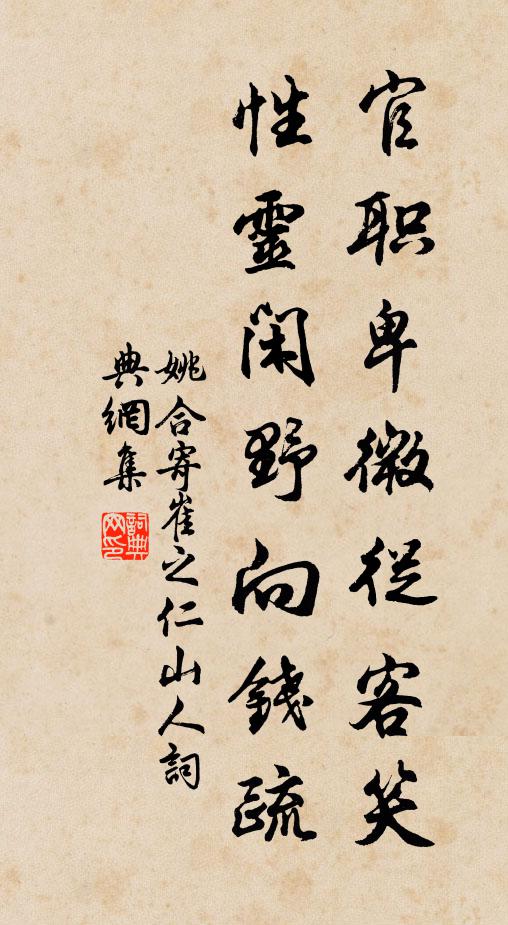 官职卑微從客笑
性靈閑野向錢疏
姚合寄崔之仁山人詞
典網集
詞典
网印